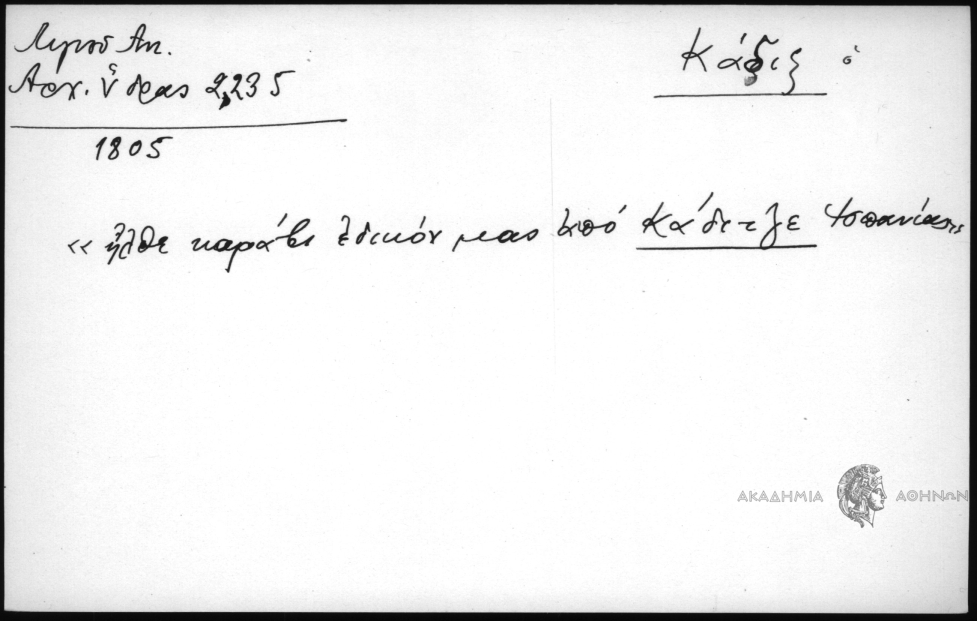 Λιγνού Αν.
Αρχ. Ὕδρας 2,235
1805
Κάδιξ ὁ
« ἦλθε καράβι ἐδικόν μας ἀπό Κάδιτζε Ἱσπανίας »
ΑΚΑΔΗΜΙΑ ΑΘΗΝΩΝ